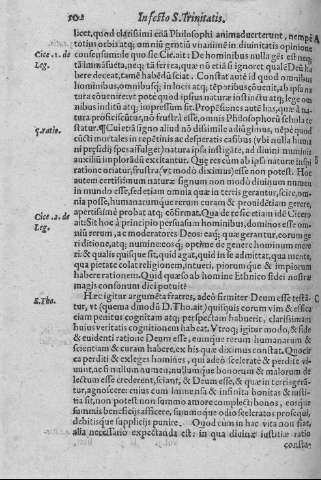 102 In festo S. Trinitatis.
licet, quod clarissimi etiā Philosophi animaduerterunt, nempè
totius orbis atq; omniū gentiū vnanimē in diuinitatis opinione
Cice. 1. de
Leg.
consensum: de quo sic Cic. ait: De hominibus nulla gēs est neq;
tā immāsueta, neq; tā ferrea, quæ nō etiā si ignoret qualē Deū ha
bere deceat, tamē habēdū sciat. Constat autē id quod omnibus
hominibus, omnibusq; in locis atq; tēporibus
tura
nibus inditū atq; impressum sit.
proficiscūtur, nō frustrà esse, omnis Philosophorū schola te
statur. ¶ Cui etiā signo aliud nō dissimile adiūgimus, nēpè quod
5. ratio.
cūcti mortales in repētinis ac desperatis casibus (vbi nulla huma
ni præsidij spes affulget) natura ipsa instigāte, ad diuini numinis
auxiliū implorādū excitantur. Quæ res cùm ab ipsa naturæ inspi
ratione oriatur, frustra (vt modò diximus) esse non potest. Hoc
autem certissimum naturæ signum non modò diuinum numen
in mundo esse, sed etiam omnia quæ in terris gerantur, scire, om-
nia posse, humanarumque rerum curam & prouidētiam gerere,
apertissimè probat atq; cōfirmat. Qua de re sic etiam idē Cicero
Cice. 2. de
Leg.
ait: Sit hoc à principio persuasum hominibus, dominos esse om-
niū rerum, ac moderatores Deos: eaq́; quæ gerantur, eorum ge
ri ditione, atq; numine: eosq́; optimè de genere hominum mere
ri: & qualis quisque sit, quid agat, quid in se admittat, qua mente,
qua pietate colat religionem, intueri, piorumque & impiorum
habere rationem. Quid quæso ab homine Ethnico fidei nostræ
magis consonum dici potuit?
Hæc igitur argumēta fratres, adeò firmiter Deum esse testā-
S. Tho.
tur, vt (quema dmodū D. Tho. ait) quisquis eorum vim & effica
ciam penitus cognitam atq; perspectam habuerit, clarissimam
huius veritatis cognitionem habeat. Vtroq; igitur modo, & fide
& euidenti ratione Deum esse, eumque rerum humanarum &
scientiam & curam habere, ex his quæ diximus constat. Quòd si
ea perditi & exleges homines, qui adeò sceleratè & perditè vi-
uunt, ac si nullum numen, nullumque bonorum & malorum de
lectum esse crederent, sciant, & Deum esse, & quæ in terris gerā-
tur, agnoscere: eius cum immensa & infinita bonitas & iusti-
tia sit, non potest non summo amore complecti bonos, eosque
summis beneficijs afficere, summoque odio sceleratos prosequi,
debitisque supplicijs punire. Quod cum in hac vita non fiat,
alia necessario expectanda est: in qua diuinæ iustitiæ ratio
constat